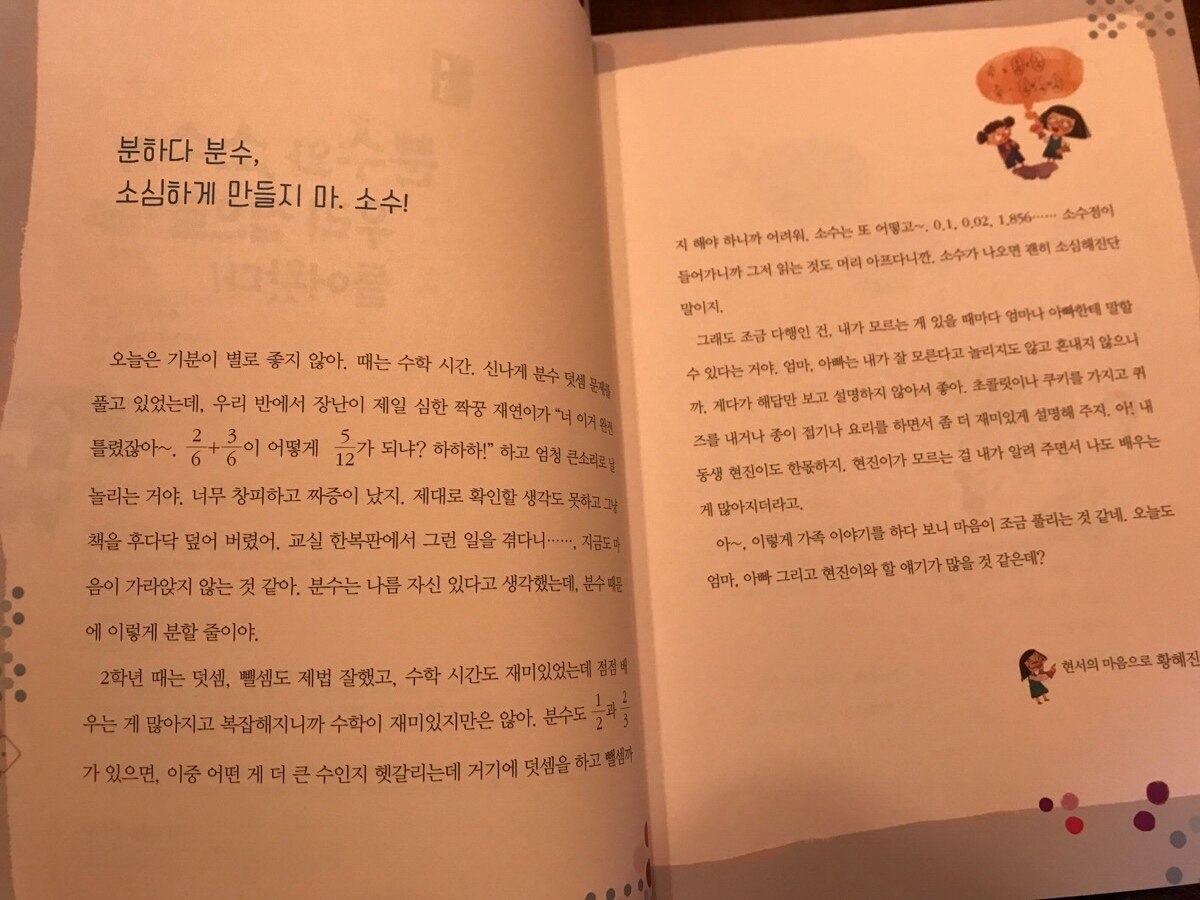 분하다 분수,
소심하게 만들지 마. 소수!
오늘은 기분이 별로 좋지 않아. 때는 수학 시간. 신나게 분수 덧셈 문제를
풀고 있었는데, 우리 반에서 장난이 제일 심한 짝꿍 재연이가 “너 이거 완전
틀렸잖아~. 2/6+3/6이 어떻게 5/12가 되냐? 하하하!” 하고 엄청 큰소리로 날
놀리는 거야. 너무 창피하고 짜증이 났지. 제대로 확인할 생각도 못하고 그냥
책을 후다닥 덮어 버렸어. 교실 한복판에서 그런 일을 겪다니……, 지금도 마
음이 가라앉지 않는 것 같아. 분수는 나름 자신 있다고 생각했는데, 분수 때문
에 이렇게 분할 줄이야.
2학년 때는 덧셈, 뺄셈도 제법 잘했고, 수학 시간도 재미있었는데 점점 배
우는 게 많아지고 복잡해지니까 수학이 재미있지만은 않아. 분수도 1/2과 2/3
가 있으면, 이중 어떤 게 더 큰 수인지 헷갈리는데 거기에 덧셈을 하고 뺄셈까
지 해야 하니까 어려워. 소수는 또 어떻고~. 0.1, 0.02, 1.856…… 소수점이
들어가니까 그저 읽는 것도 머리 아프다니깐. 소수가 나오면 괜히 소심해진단
말이지.
그래도 조금 다행인 건, 내가 모르는 게 있을 때마다 엄마나 아빠한테 말할
수 있다는 거야. 엄마, 아빠는 내가 잘 모른다고 놀리지도 않고 혼내지 않으니
까. 게다가 해답만 보고 설명하지 않아서 좋아. 초콜릿이나 쿠키를 가지고 퀴
즈를 내거나 종이 접기나 요리를 하면서 좀 더 재미있게 설명해 주지. 아! 내
동생 현진이도 한몫하지. 현진이가 모르는 걸 내가 알려 주면서 나도 배우는
게 많아지더라고.
아~, 이렇게 가족 이야기를 하다 보니 마음이 조금 풀리는 것 같네. 오늘도
엄마, 아빠 그리고 현진이와 할 얘기가 많을 것 같은데?
현서의 마음으로 황혜진